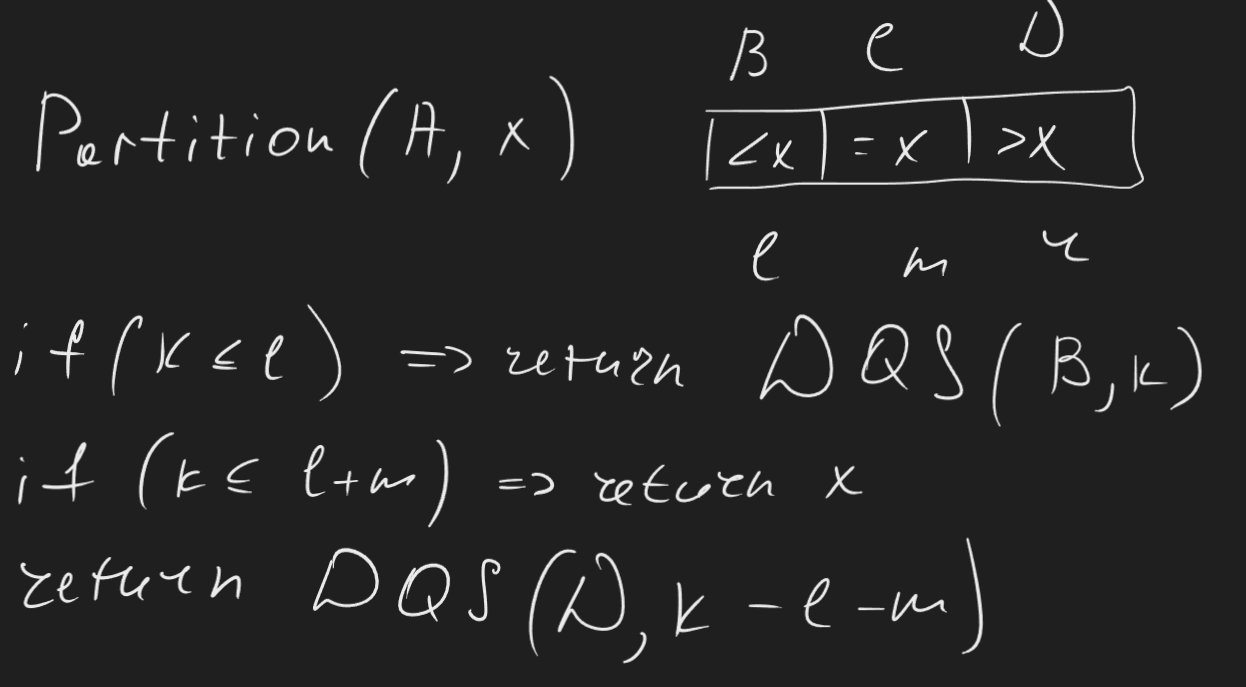 B C D
Partition(A, x) <x =x >x
l m r
if (k ≤ l) => return DQS(B, k)
if (k ≤ l+m) => return x
return DQS(D, k - l - m)